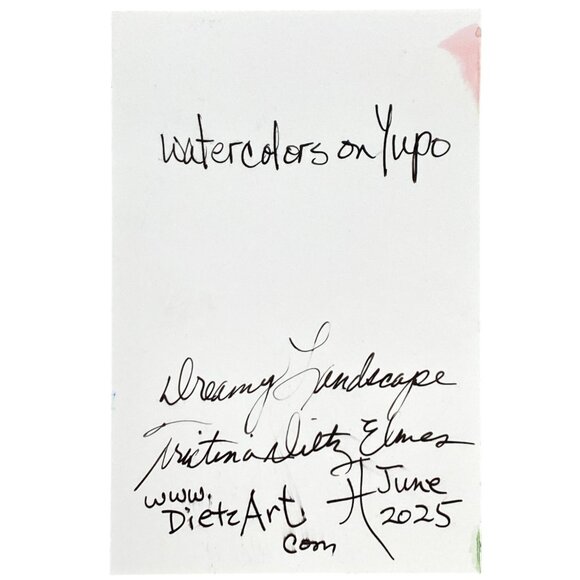 watercolors on Yupo
Dreamy Landscape
Tristina Dietz Elmes
www.
DietzArt.
com
June
2025